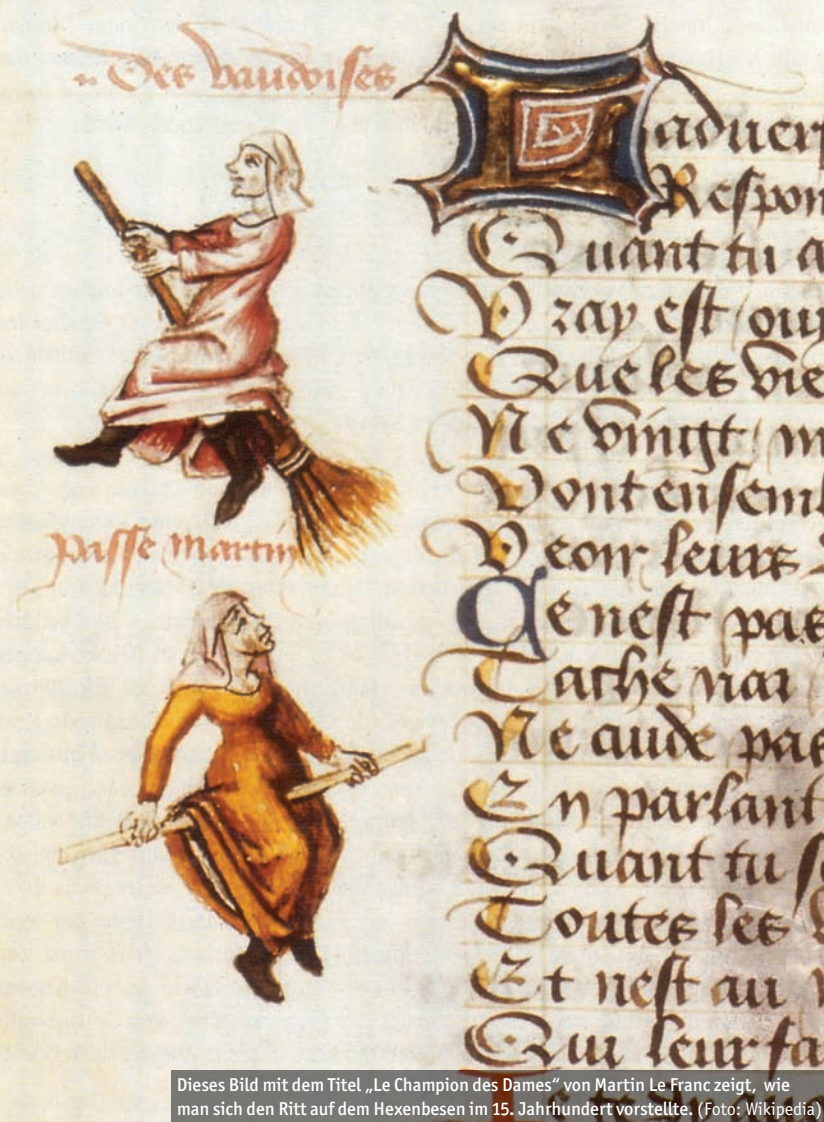 Des vaudoises
Laduer
Respon
Quant tu a
Vray est ouy
Que les vie
Ne vingt
Vont ensembl
Veoir leurs
passe martin
Ce nest pas
Tache
Ne cuide pas
En parlant
Quant tu
Toutes les
Et nest au
Qui leur fa
Dieses Bild mit dem Titel „Le Champion des Dames“ von Martin Le Franc zeigt, wie
man sich den Ritt auf dem Hexenbesen im 15. Jahrhundert vorstellte. (Foto: Wikipedia)